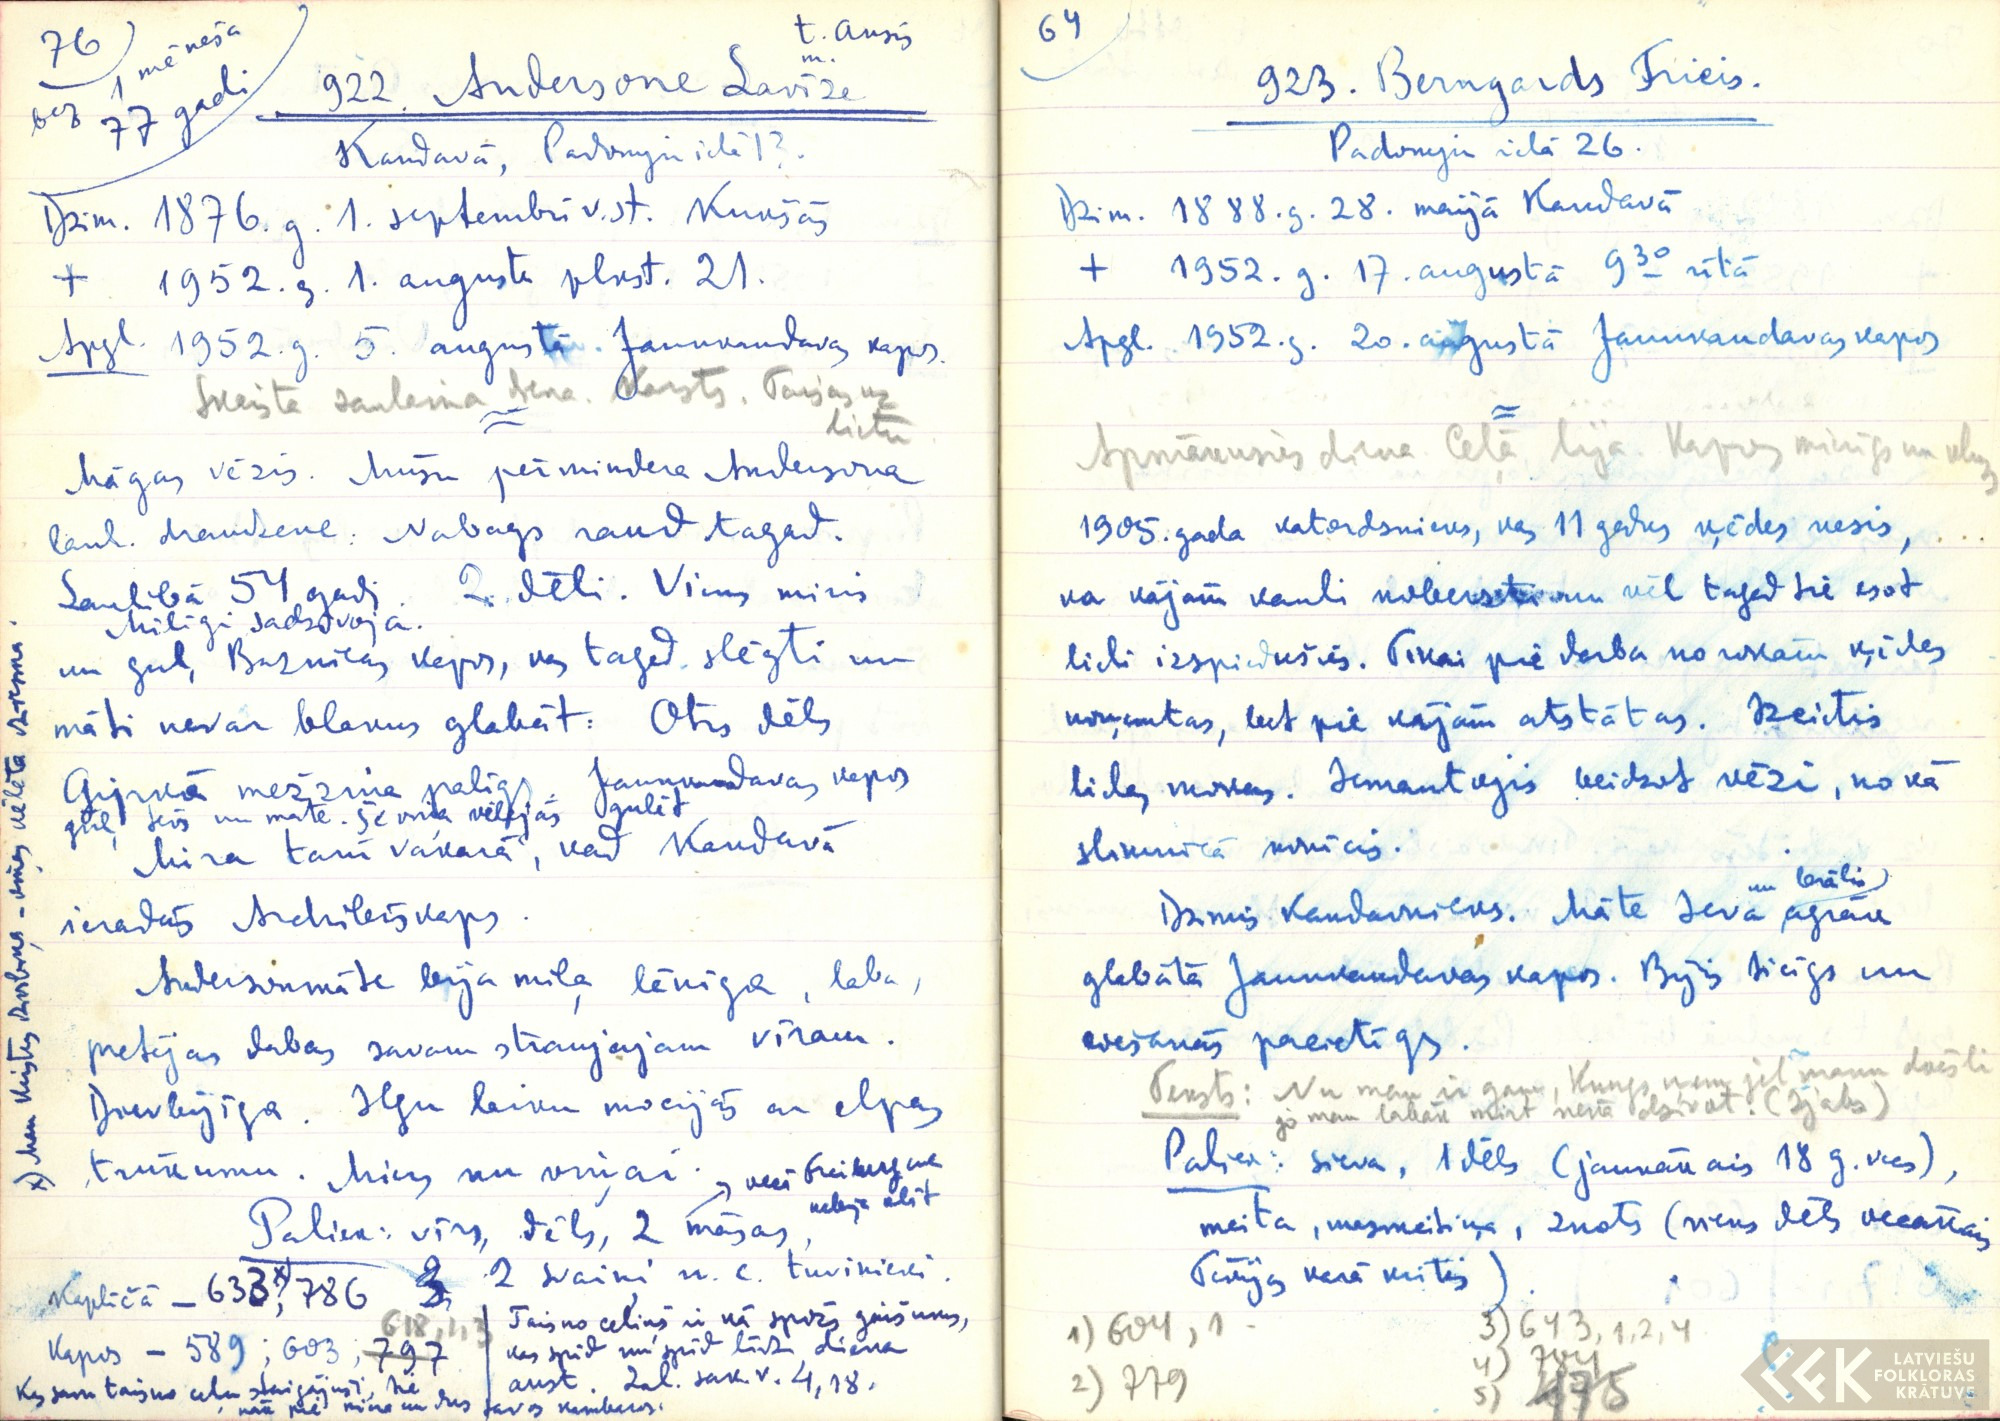 76
bez 1 mēneša
77 gadi
t. Ansis
m.
922. Andersone Lavīze
Kandavā, Padomju ielā 13.
Dzim. 1876. g. 1. septembrī v. st. Kukšās
+ 1952. g. 1. augusta plkst. 21.
Apgl. 1952. g. 5. augustā Jaunkandavas kapos.
Skaista saulaina diena. Karsts. Taisās uz
lietu
Māgas vēzis. Mūsu pērmindera Andersona
laul. draudzene. Nabags raud tagad.
Laulībā 54 gadi. 2 dēli. Viens miris
Mīlīgi sadzīvoja.
un guļ Baznīcas kapos, kas tagad slēgti un
māti nevar blakus glabāt. Otrs dēls
mežziņa palīgs. Jaunkandavas kapos
guļ tēvs un māte. Še viņa vēlējās gulēt
Mira tanī vakarā, kad Kandavā
ieradās Archibīskaps.
Andersonmāte bija mīļa, lēnīga, laba,
pretējas dabas savam straujajam vīram.
Dievbijīga. Ilgu laiku mocījās ar elpas
trūkumu. Miers nu viņai.
Paliek: vīrs, dēls, 2 māsas,
veci Freibergi
nebija klāt
2 svaiņi u. c. tuvinieki.
Kapličā – 633x), 786
618, 1, 3
Kapos – 589; 603; 797
Kas savu taisno ceļu staigājuši, tie
nāk pie miera un dus savos kambaros.
Taisno ceļš ir kā spožs gaišums,
kas spīd un spīd līdz diena
aust. Zal. sak. v. 4, 18.
x) Man Kristus dārgums – viņas vēlēta dziesma.
64
923. Berngards Fricis.
Padomju ielā 26.
Dzim. 1888. g. 28. maijā Kandavā
+ 1952. g. 17. augustā 9 30 rītā
Apgl. 1952. g. 20. augustā Jaunkandavas kapos
Apmākusies diena. Ceļā lija. Kapos mierīgs un kluss
1905. gada katordznieks, kas 11 gadus ķēdes nesis,
ka kājām kauli noberzti un vēl tagad tie esot
līki izspiedušies. Tikai pie darba no rokām ķēdes
noņemtas, bet pie kājām atstātas. Izcietis
lielas mokas. Izmantojis beidzot vēzi, no kā
slimnīcā nomiris.
Dzimis Kandavnieks. Māte Ieva un brālis agrāk
glabātā Jaunkandavas kapos. Bijis ticīgs un
ciešanās pacietīgs.
Teksts: Nu man ir gana, Kungs, ņem jel manu dvēseli
jo man labāk mirt nekā dzīvot. (Sjaks)
Paliek: sieva, 1 dēls (jaunākais 18 g. vecs),
meita, mazmeitiņa, znots (viens dēls vecākais
Tēvijas karā kritis).
1) 604, 1
2) 779
3) 643, 1, 2, 4
4) 784
5) 475
LATVIEŠU
FOLKLORAS
KRĀTUVE